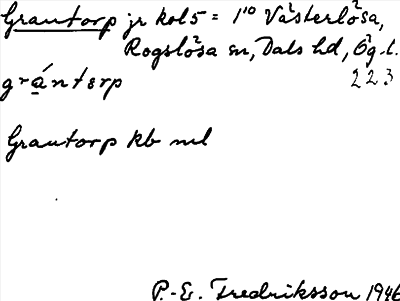 Grantorp jr kol 5 = 1¹⁰ Västerlösa,
Rogslösa sn, Dals hd, Ög. l.
grántɛrp 223
Grantorp kb ml
P.-E. Fredriksson 1946